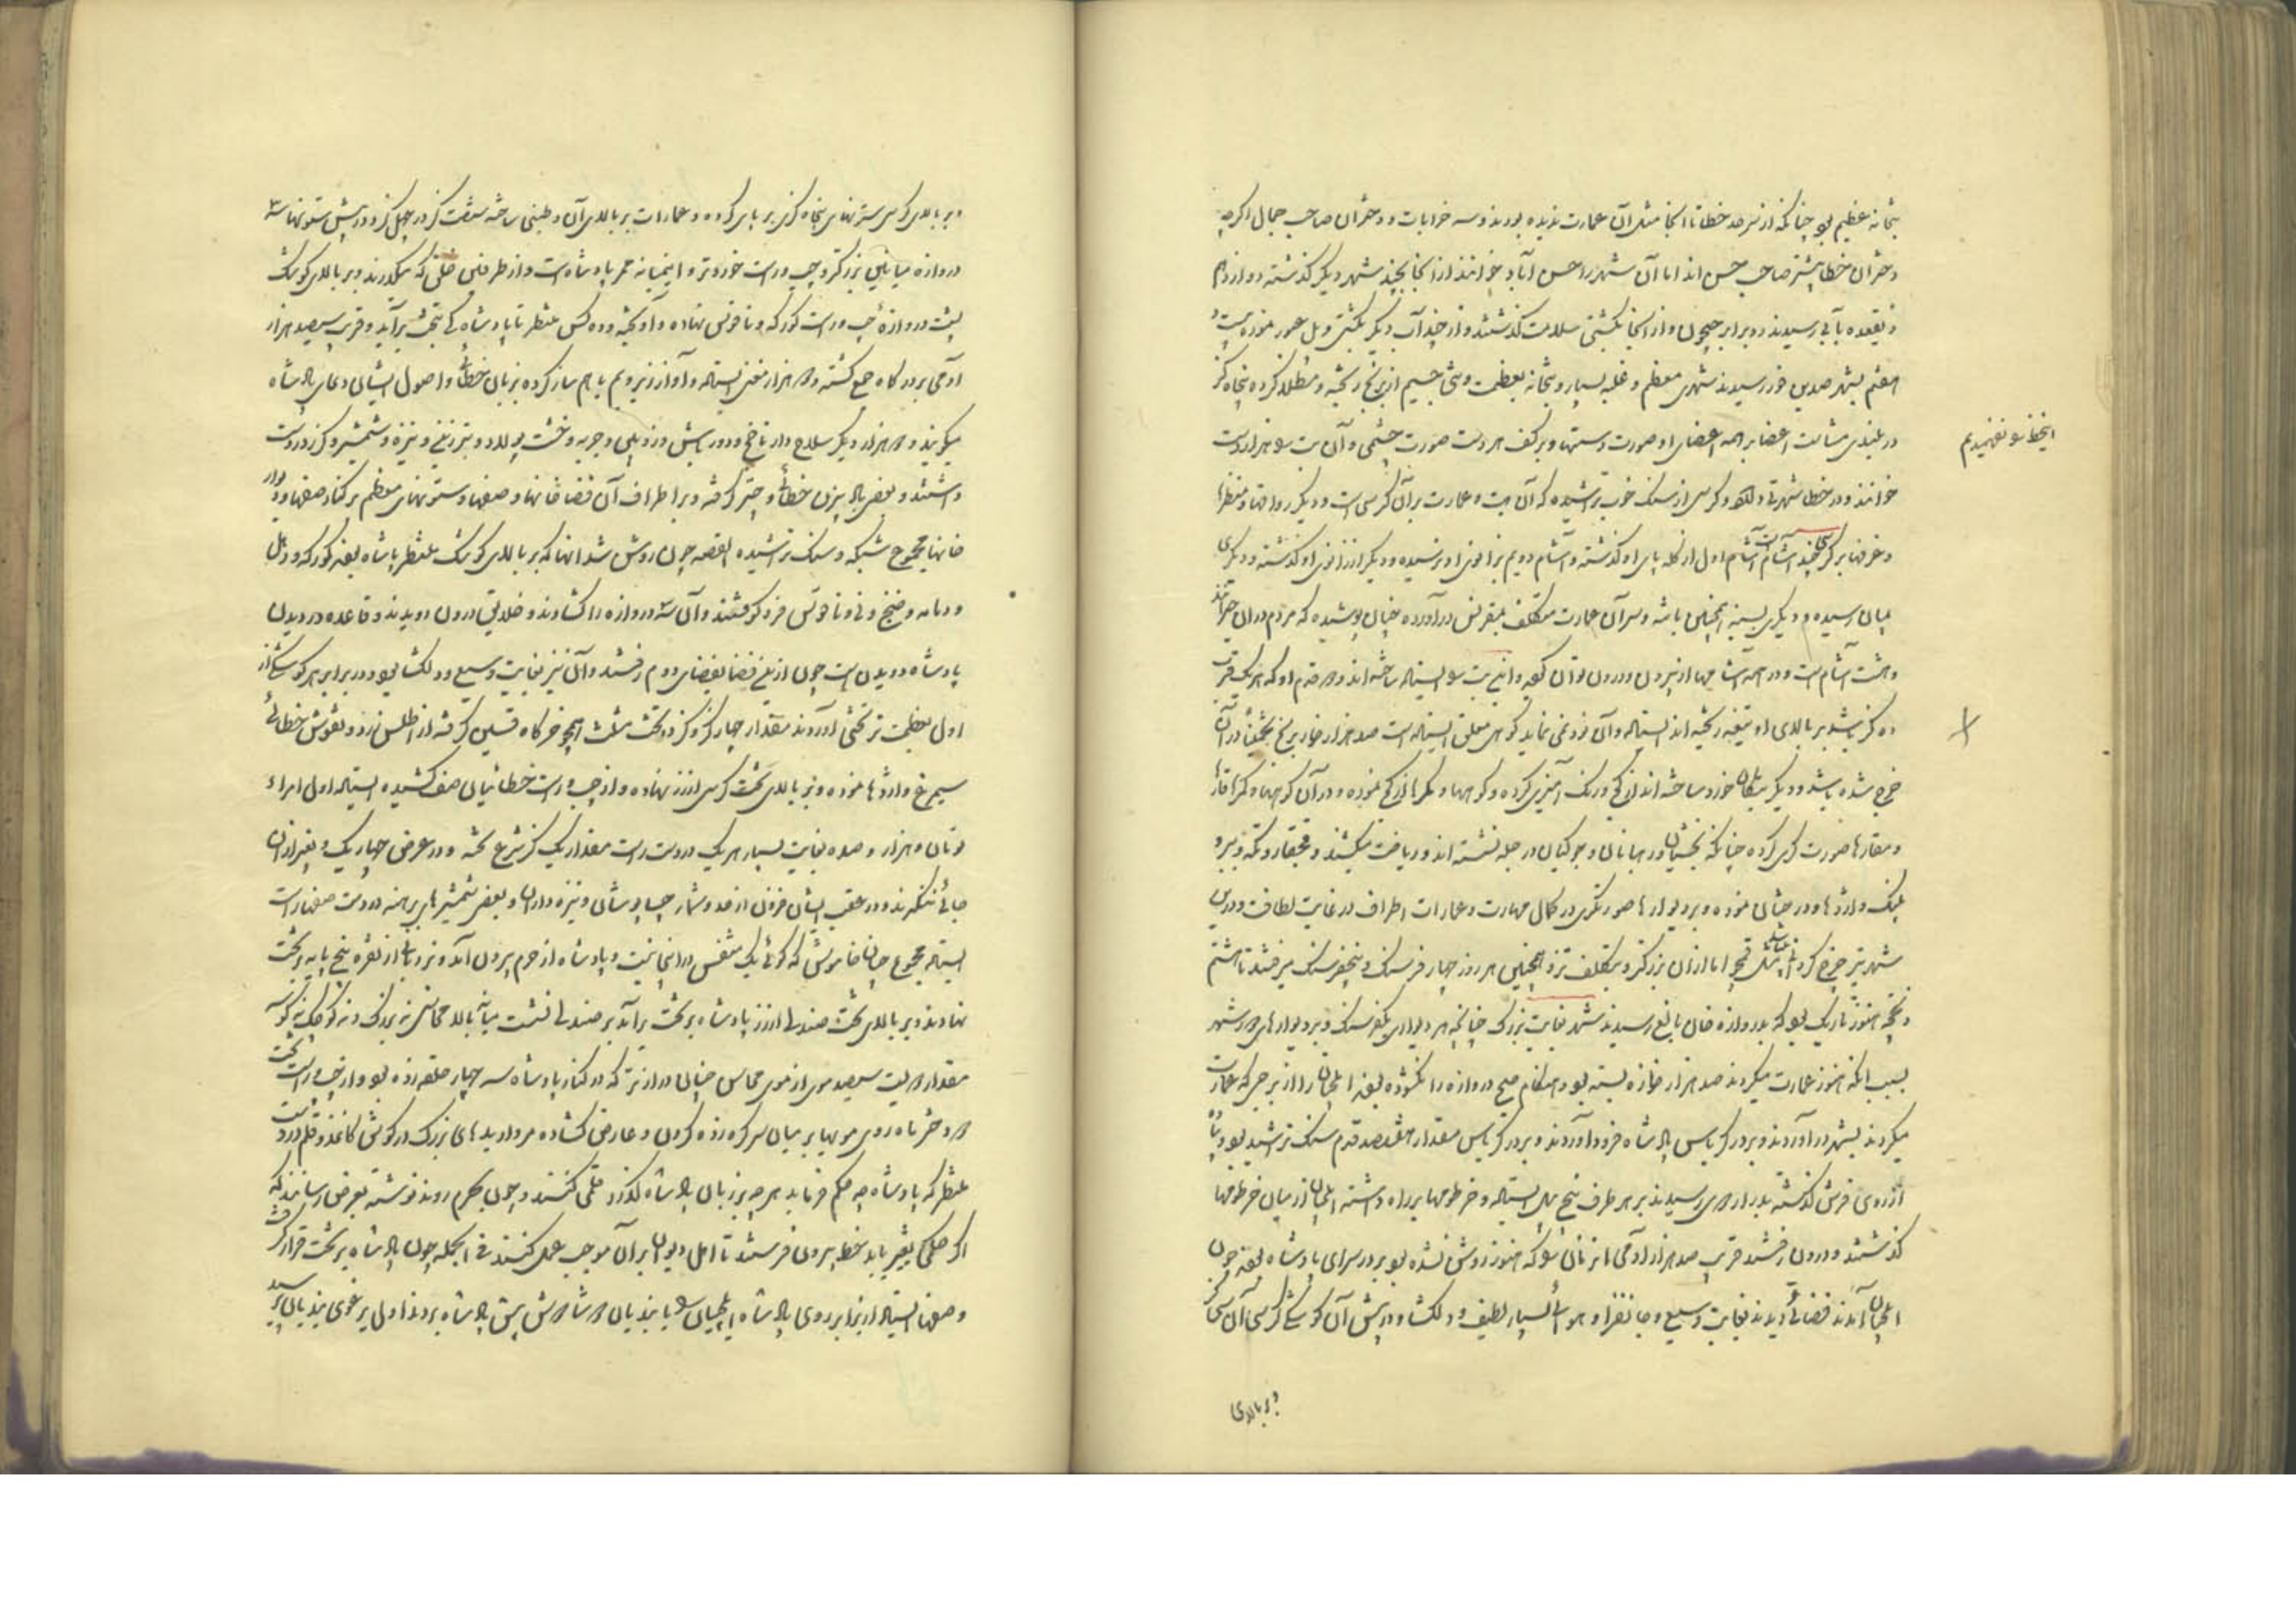 بتخانه عظیم بود چنانکه از سرحد خطا تا آنجا مثل آن عمارت ندیده بودند و سه خرابات و دختران صاحب جمال اگرچه
دختران خطا بیشتر صاحب حسن اند اما آن شهر را حسن آباد خوانند از آنجا بچند شهر دیگر گذشته دوازدهم
ذیقعده بآبی رسیدند دو برابر جیحون و از آنجا بکشتی سلامت گذشتند و از چند آب دیگر بکشتی و پل عبور نموده بیست و
هفتم بشهر صدین فور رسیدند شهری معظم و غلبه بسیار و بتخانه بعظمت و بتی جسیم از برنج ریخته و مطلا کرده پنجاه گز
در بلندی متناسب اعضا بر همه اعضای او صورت دستها و بر کف هر دست صورت چشمی و آن بت را هزار دست
خوانند و در خطا شهرتی دارد و کرسی از سنگ خوب تراشیده که آن بت و عمارت بر آن کرسی است و دیگر رواقها و منظرها
و غرفها بر گرد چند آشام است آشام اول از کله پای او گذشته و آشام دویم بزانوی او نرسیده و دیگر از زانوی او گذشته و دیگری
بمیان رسیده و دیگری بسینه همچنین تا سر و سر آن عمارت متکلف بمقرنس در آورده چنان پوشیده که مردم در آن حیرانند
و هشت آشام است و در همه آشامها از بیرون و درون توان گردید و این بت را ایستاده ساخته اند و دو قدم او که هر یک قریب
ده گز باشد بر بالای دو تیغه ریخته اند ایستاده و آن فرو نمی نماید گویی معلق ایستاده است صد هزار خروار برنج تخمیناً در آن
خرج شده باشد و دیگر بتکان خورد ساخته اند از گچ و رنگ آمیزی کرده و کوهها و کمرها از گچ نموده و در آن کوهها و کمرها غارها
و مغارها صورتگری کرده چنانکه بخشیان و رهبانان و جوکیان در چله نشسته اند و ریاضت میکشند و قچقار و تکه و ببر و
پلنگ و اژدها و درختان نموده و بر دیوارها صورتگری در کمال مهارت و عمارات اطراف در غایت لطافت و در این
شهر نیز چرخ گردانی مثل قمچو اما از آن بزرگتر و بتکلف تر و همچنین هر روز چهار فرسنگ و پنج فرسنگ میرفتند تا هشتم
ذی حجه هنوز تاریک بود که بدروازه خان بالغ رسیدند شهر بغایت بزرگ چنانچه هر دیواری یکفرسنگ و بر دیوارهای دور شهر
بسبب آنکه هنوز عمارت میکردند صد هزار خوازه بسته بود هنگام صبح دروازه را نگشوده بودند ایلچیان را از برجی که عمارت
میکردند بشهر در آوردند و بر در کریاس پادشاه فرود آوردند و بر در کریاس مقدار هفتصد قدم سنگ تراشیده بود پیاده
از روی فرش گذشته بدر ارک رسیدند بر هر طرف پنج پیل ایستاده و خرطومها بر راه داشته ایلچیان از میان خرطومها
گذشتند و درون رفتند قریب صد هزار آدمی در آن زمان که هنوز روشن نشده بود بر در سرای پادشاه بودند چون
ایلچیان آمدند فضائی دیدند بغایت وسیع و جانفزا و هوائی بسیار لطیف و دلگشا و در پیش آن کوشکی کرسی آن سی گز
و بر بالای
اینجا نفهمیدم
و بر بالای کرسی ستونهای پنجاه گزی بر پای کرده و عمارات بر بالای آن و طنبی ساخته شصت گز در چهل گز و در پیش ستونها سه
دروازه میانین بزرگتر و چپ و راست خوردتر و این میانه ممر پادشاه است و از طرفین خلق که میگذرند و بر بالای کوشک
پشت دروازه چپ و راست گورکه و ناقوس نهاده و آویخته و ده کس منتظر تا پادشاه کی بتخت برآید و قریب سیصد هزار
آدمی بر درگاه جمع گشته و دو هزار مغنی ایستاده و آواز زیر و بم با هم ساز کرده بزبان خطائی و اصول ایشان دعای پادشاه
میگویند و دو هزار دیگر سلاح دار ناچخ و دورباش و زوبین و حربه و خشت پولاد و تبرزین و نیزه و شمشیر و گرز در دست
داشتند و بعضی بادبیزن خطائی و چتر گرفته و بر اطراف آن فضا خانها و صفها و ستونهای معظم بر کنار صفها و دیوار
خانها مجموع شبکه و سنگ تراشیده القصه چون روشن شد آنها که بر بالای کوشک منتظر پادشاه بودند کورکه و دهل
و دمامه و صنج و نی و ناقوس فرو کوفتند و آن سه دروازه را گشادند و خلایق درون دویدند و قاعده در دیدن
پادشاه دویدن است چون از این فضا بفضای دوم رفتند و آن نیز بغایت وسیع و دلگشا بود در برابر هم کوشکی از
اول بعظمت تر تختی آوردند مقدار چهار گز در گز در تخت مثلث همچو خرگاه قسین گرفته از اطلس زرد و نقوش خطائی
سیمرغ و اژدها نموده و بر بالای تخت کرسی از زر نهاده و از چپ و راست خطائیان صف کشیده ایستاده اول امراء
تومان و هزار و صده بغایت بسیار هر یک در دست راست مقدار یک گز شرع تخته و در عرض چهار یک و بغیر از آن
جائی ننگرند و در عقب ایشان فزون از حد و شمار جبا پوشان و نیزه داران و بعضی شمشیرهای برهنه در دست صفها راست
ایستاده مجموع چنان خاموش که گوئی یک متنفس در آنجا نیست و پادشاه از حرم بیرون آمد و نردبانی از نقره پنج پایه بر تخت
نهادند و بر بالای تخت صندلی از زر پادشاه بر تخت برآمد بر صندلی نشست میانه بالا محاسنش نه بزرگ و نه کوچک نه کوسه
مقدار دویست سیصد موی از موی محاسن چنان دراز تر که در کنار پادشاه سه چهار حلقه زده بود و از چپ و راست تخت
دو دختر ماه روی مویها بر میان سر گره زده گردن و عارض گشاده مرواریدهای بزرگ در گوش کاغذ و قلم در دست
منتظر که پادشاه چه حکم فرماید هر چه بر زبان پادشاه گذرد قلمی کنند و چون بحرم روند نوشته بعرض رسانند که
اگر حکمی تغییر باید بخط بیرون فرستند تا اهل دیوان بر آن موجب عمل کنند فی الجمله چون پادشاه بر تخت قرار گرفت
و صفها ایستاد از برابر روی پادشاه ایلچیان را با بندیان دو شادوش پیش پادشاه بردند اول پرغوی بندیان پرسید